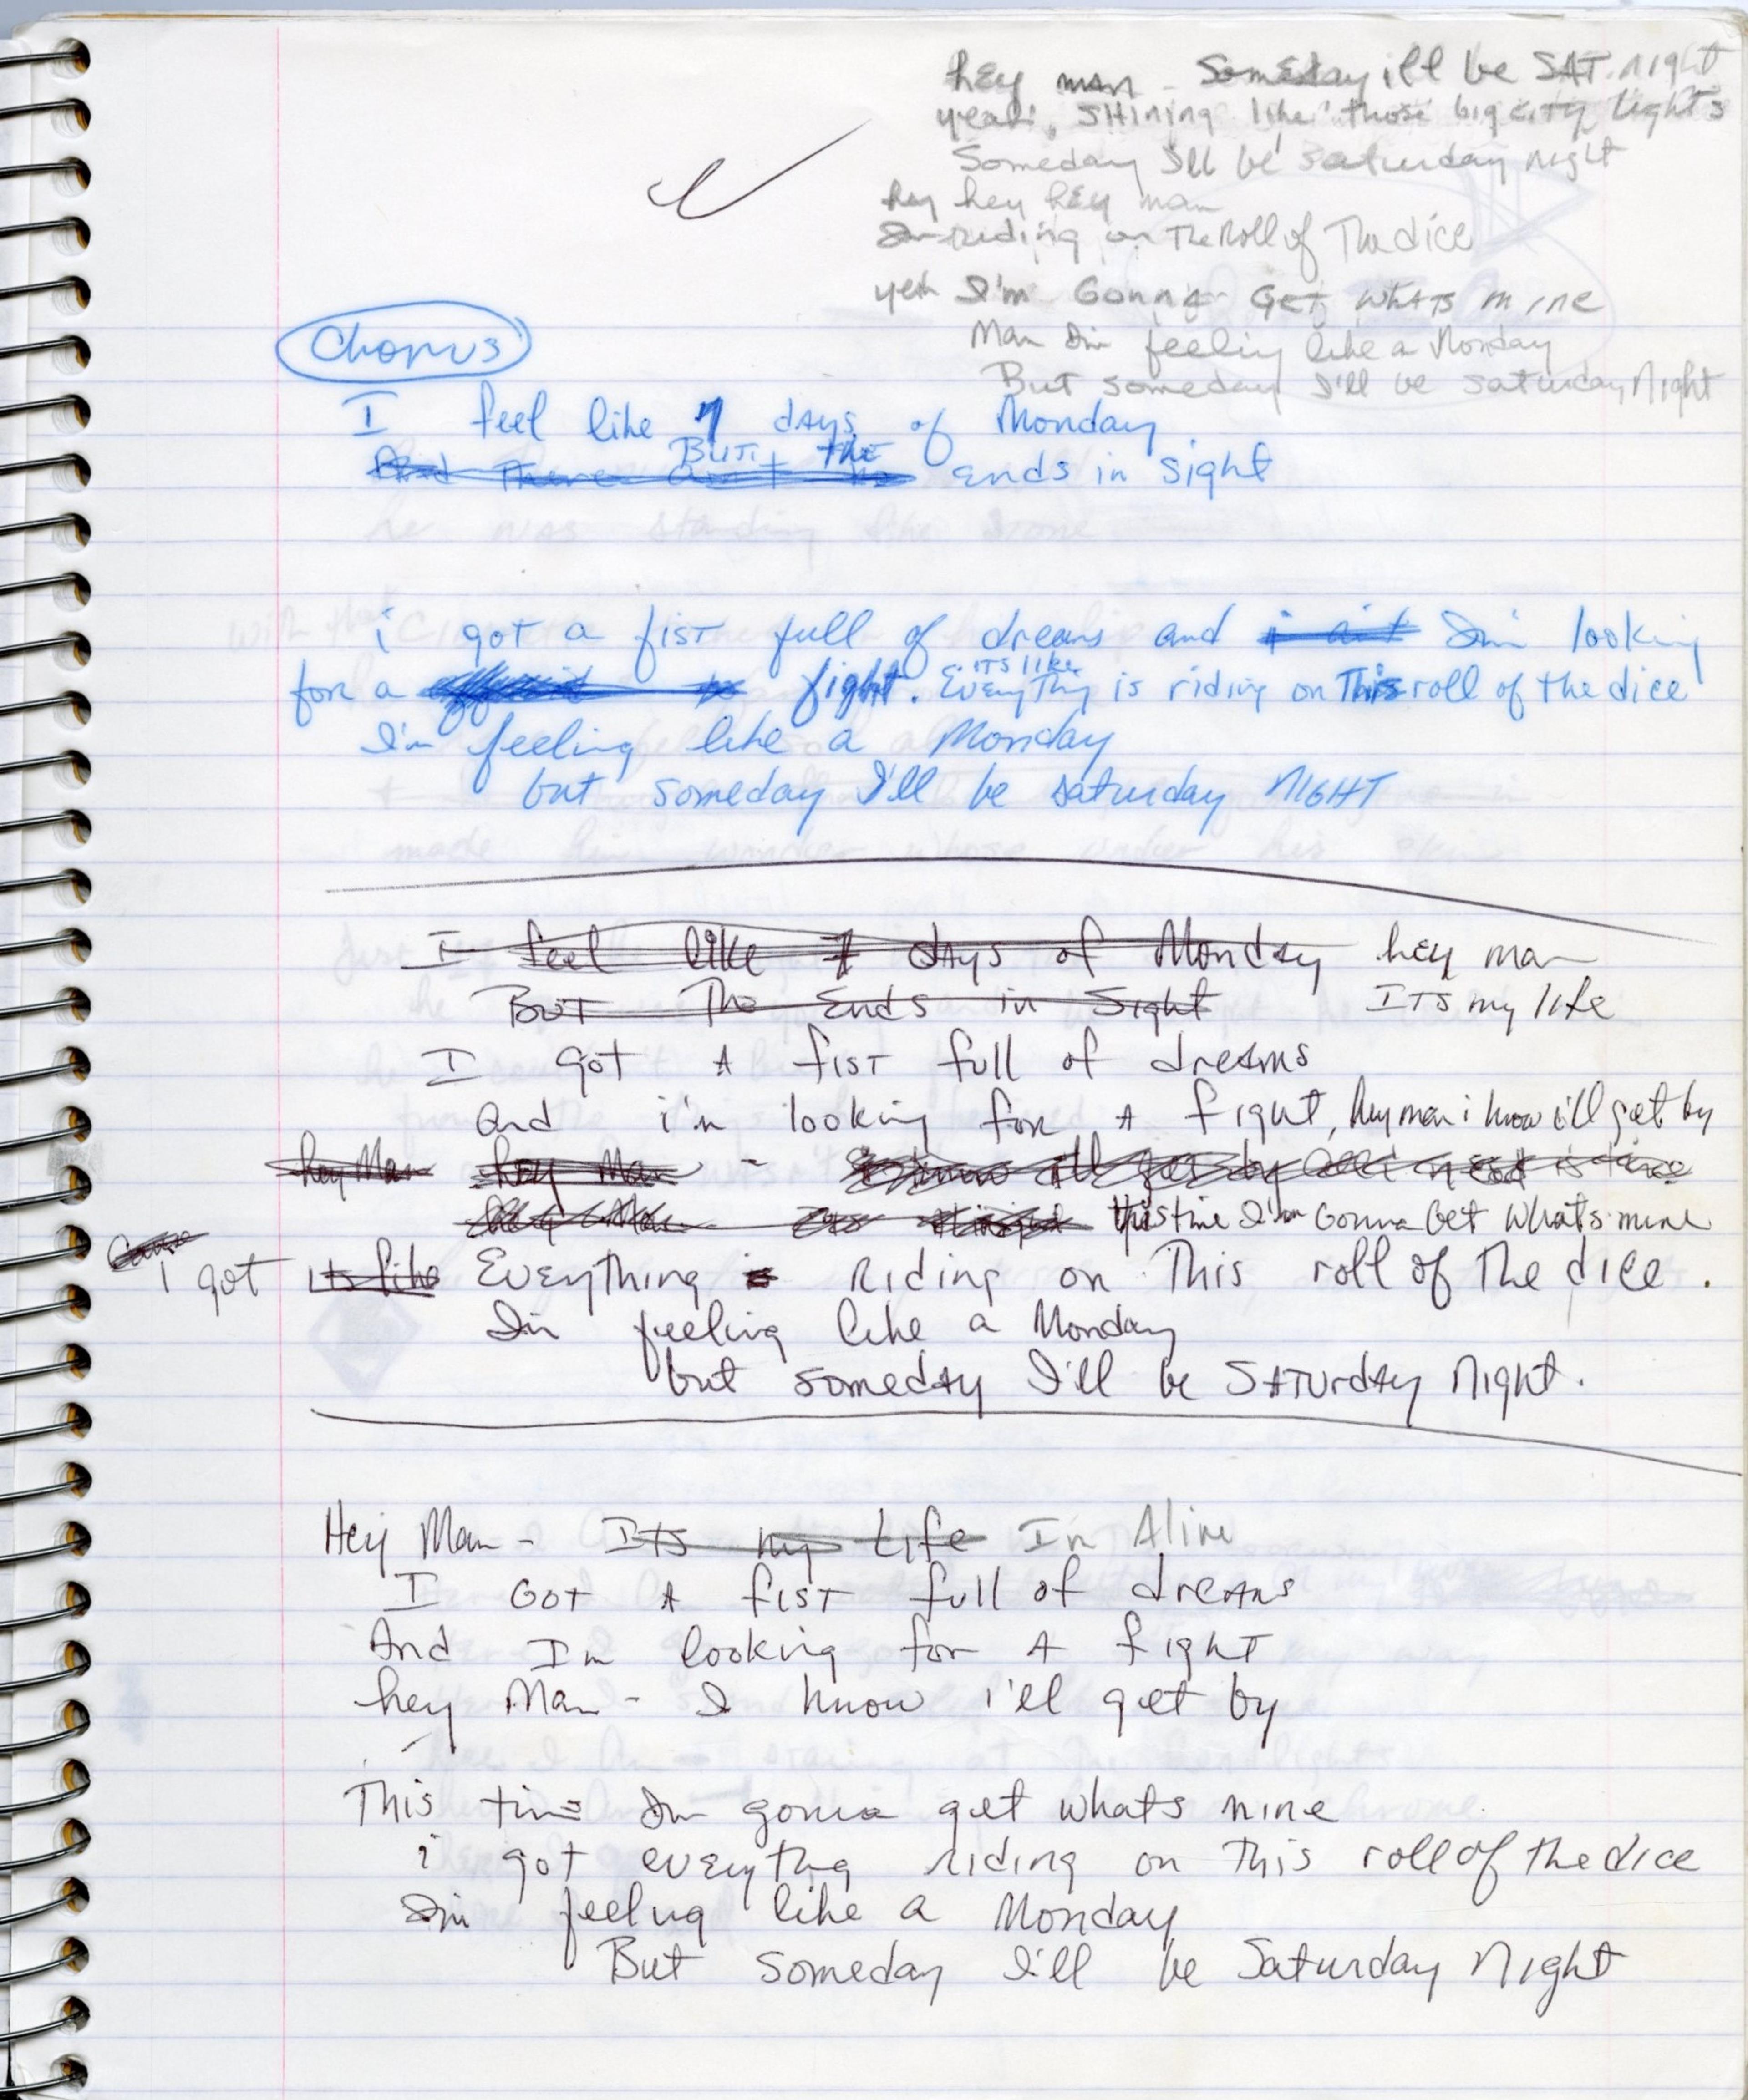 hey man - Someday ill be SAT. night
yeah, SHining like those big city lights
Someday I'll be saturday night
hey hey hey man
riding on The Roll of The dice
yeh I'm Gonna Get whats mine
Man Im feeling like a Monday
But someday I'll be saturday Night
Chorus
I feel like 7 days of Monday
But the
And There ain't no ends in sight
i got a fist full of dreams and i ain't I'm looking
for a fight. its like Everything is riding on This roll of the dice
I'm feeling like a Monday
but someday I'll be saturday NIGHT
I feel like 7 days of Monday hey man
But The Ends in Sight ITs my life
I got A fist full of dreams
and i'm looking for A fight, hey man i know i'll get by
hey Man hey Man - I know ill get by all i need is time
This time I'm Gonna Get whats mine
Cause i got its like Everything is Riding on This roll of The dice.
Im feeling like a Monday
but someday I'll be Saturday Night.
Hey Man - ITs my Life Im Alive
I Got A fist full of dreams
And Im looking for A fight
hey Man - I know i'll get by
This time Im gonna get whats mine
i got everythng Riding on This roll of the dice
Im feelng like a Monday
But someday I'll be Saturday Night